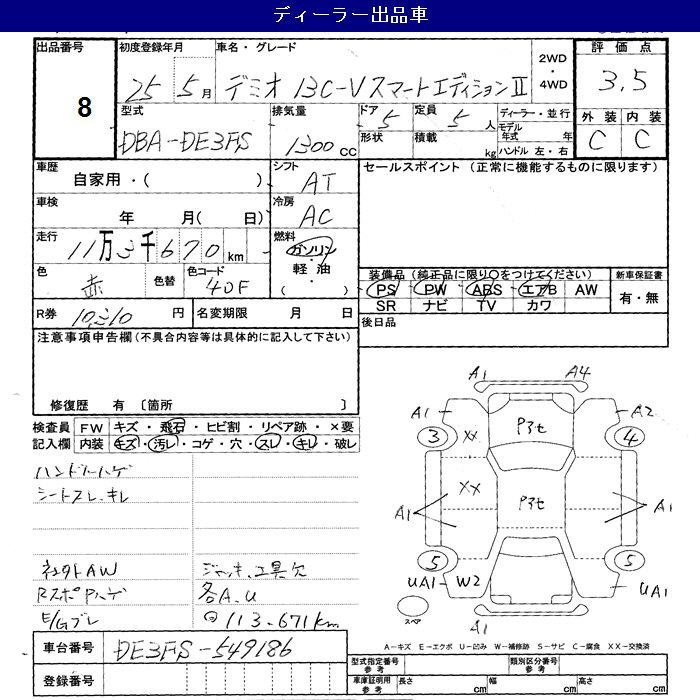 ディーラー出品車
出品番号
8
初度登録年月
25 5月
車名・グレード
デミオ 13C-Vスマートエディション Ⅱ
2WD
・
4WD
評価点
3.5
外装 内装
C C
型式
DBA-DE3FS
排気量
1300cc
ドア 5
形状
定員 5人
積載 kg
ディーラー・並行
モデル年式 年
ハンドル 左・右
車歴
自家用・( )
シフト
AT
セールスポイント (正常に機能するものに限ります)
車検
年 月( 日)
冷房
AC
走行
11万3千670km
燃料
ガソリン
・
軽油
・
( )
色
赤
色替
色コード
40F
装備品(純正品に限り○をつけてください)
PS PW ABS エアB AW
SR ナビ TV カワ
新車保証書
有・無
R券 10,310 円
名変期限 月 日
後日品
注意事項申告欄(不具合内容等は具体的に記入して下さい)
修復歴 有 〔箇所 〕
検査員記入欄
FW キズ・飛石・ヒビ割・リペア跡・×要
内装 キズ・汚レ・コゲ・穴・スレ・キレ・破レ
ハンドルハゲ
シートスレ、キレ
社外AW
ジャッキ、工具欠
各A.U
E/Gブレ
113.671km
A1 A4
A1 A2
3 4
XX
XX
A1 A1
5 5
UA1 W2 UA1
スペア
A1
A-キズ E-エクボ U-凹み W-補修跡 S-サビ C-腐食 XX-交換済
車台番号
DE3FS-549186
登録番号
型式指定番号
参考
類別区分番号
参考
車庫証明用
参考
長さ cm 幅 cm 高さ cm